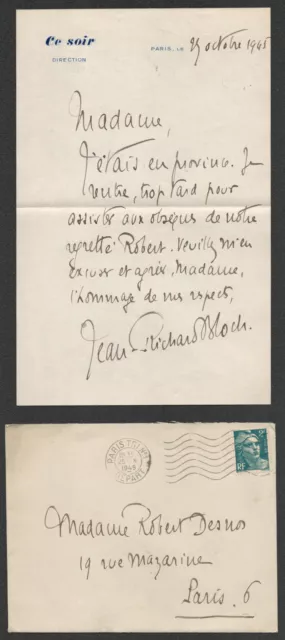 Ce soir
DIRECTION
PARIS, LE
octobre 1945
Madame,
J'étais en province. Je
rentre, trop tard pour
assister aux obsèques de notre
regretté Robert. Veuillez m'en
excuser et agréer, Madame,
l'hommage de mes respects,
Jean-Richard Bloch.
PARIS TRI
1945
DÉPART
RF
Madame Robert Desnos
19 rue Mazarine
Paris. 6